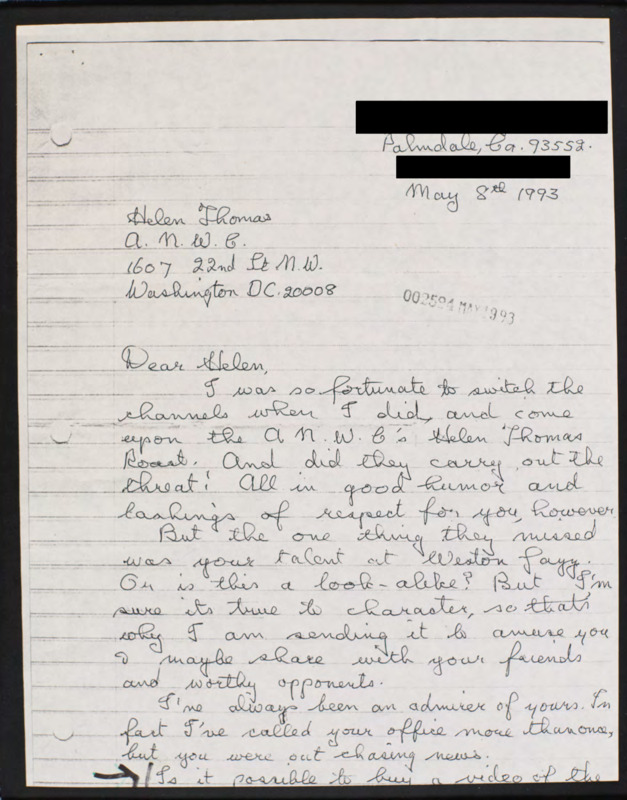 Palmdale, Ca. 93552.
May 8th 1993
Helen Thomas
A. N. W. C.
1607 22nd St N.W.
Washington DC. 20008
002594 MAY 1993
Dear Helen,
I was so fortunate to switch the
channels when I did, and come
upon the A N. W. C's Helen Thomas
Roast. And did they carry out the
threat! All in good humor and
lashings of respect for you, however
But the one thing they missed
was your talent at Weston
Or is this a look-alike? But I'm
sure its true to character, so thats
why I am sending it to amuse you
& maybe share with your friends
and worthy opponents.
I've always been an admirer of yours. In
fact I've called your office more than once,
but you were out chasing news.
Is it possible to buy a video of the